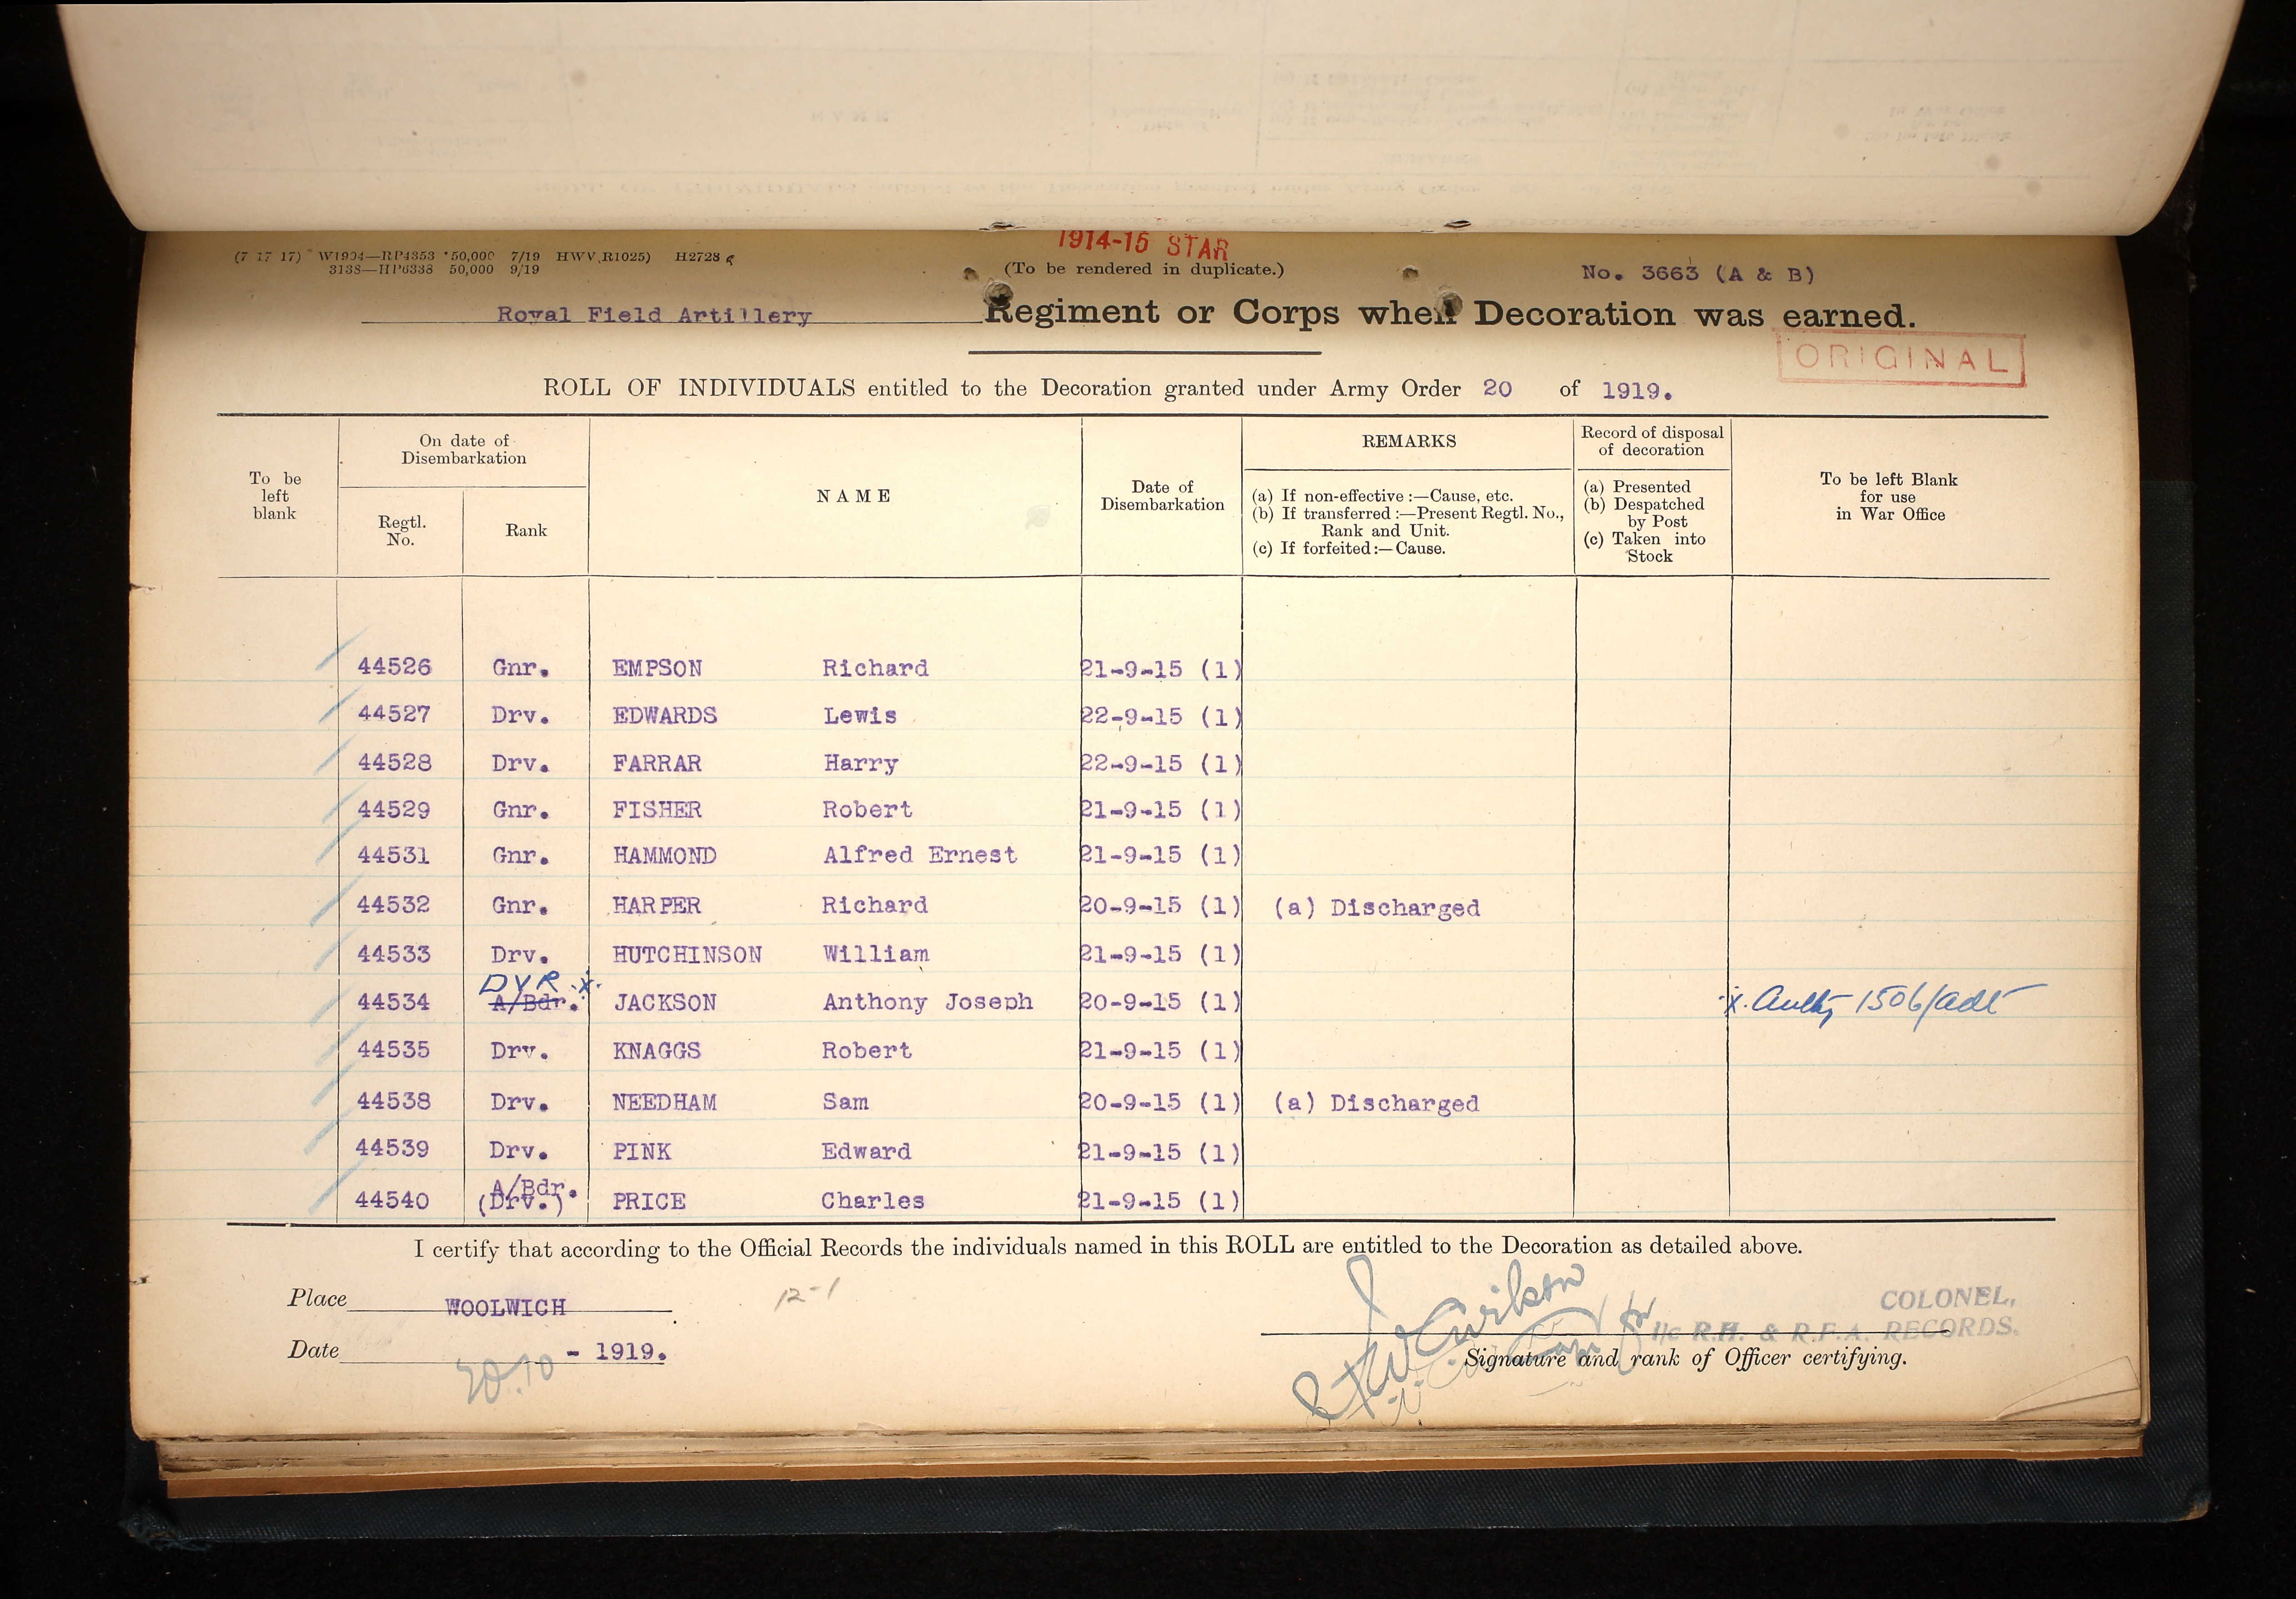 1914-15 STAR
(7 17 17) W1904—RP4353 50,000 7/19 HWV(R1025) H2728
3138—HP6338 50,000 9/19
(To be rendered in duplicate.)
No. 3663 (A & B)
Royal Field Artillery Regiment or Corps when Decoration was earned.
ORIGINAL
ROLL OF INDIVIDUALS entitled to the Decoration granted under Army Order 20 of 1919.
To be left blank
On date of Disembarkation
Regtl. No.
Rank
NAME
Date of Disembarkation
REMARKS
(a) If non-effective :—Cause, etc.
(b) If transferred :—Present Regtl. No., Rank and Unit.
(c) If forfeited :—Cause.
Record of disposal of decoration
(a) Presented
(b) Despatched by Post
(c) Taken into Stock
To be left Blank for use in War Office
44526 Gnr. EMPSON Richard 21-9-15 (1)
44527 Drv. EDWARDS Lewis 22-9-15 (1)
44528 Drv. FARRAR Harry 22-9-15 (1)
44529 Gnr. FISHER Robert 21-9-15 (1)
44531 Gnr. HAMMOND Alfred Ernest 21-9-15 (1)
44532 Gnr. HARPER Richard 20-9-15 (1) (a) Discharged
44533 Drv. HUTCHINSON William 21-9-15 (1)
DVR x
44534 A/Bdr. JACKSON Anthony Joseph 20-9-15 (1) x. Authy 1506/Adt
44535 Drv. KNAGGS Robert 21-9-15 (1)
44538 Drv. NEEDHAM Sam 20-9-15 (1) (a) Discharged
44539 Drv. PINK Edward 21-9-15 (1)
A/Bdr.
44540 (Drv.) PRICE Charles 21-9-15 (1)
I certify that according to the Official Records the individuals named in this ROLL are entitled to the Decoration as detailed above.
Place WOOLWICH
12-1
COLONEL,
for I/c R.H. & R.F.A. RECORDS.
Date - 1919.
Signature and rank of Officer certifying.